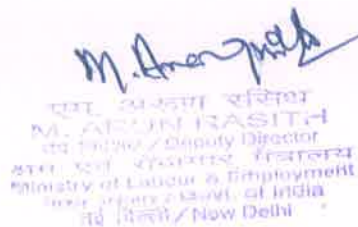 M.
एम. अरुण रसिथ
M. ARUN RASITH
उप / Deputy Director
श्रम एवं रोजगार मंत्रालय
Ministry of Labour & Employment
/ Govt. of India
नई दिल्ली / New Delhi